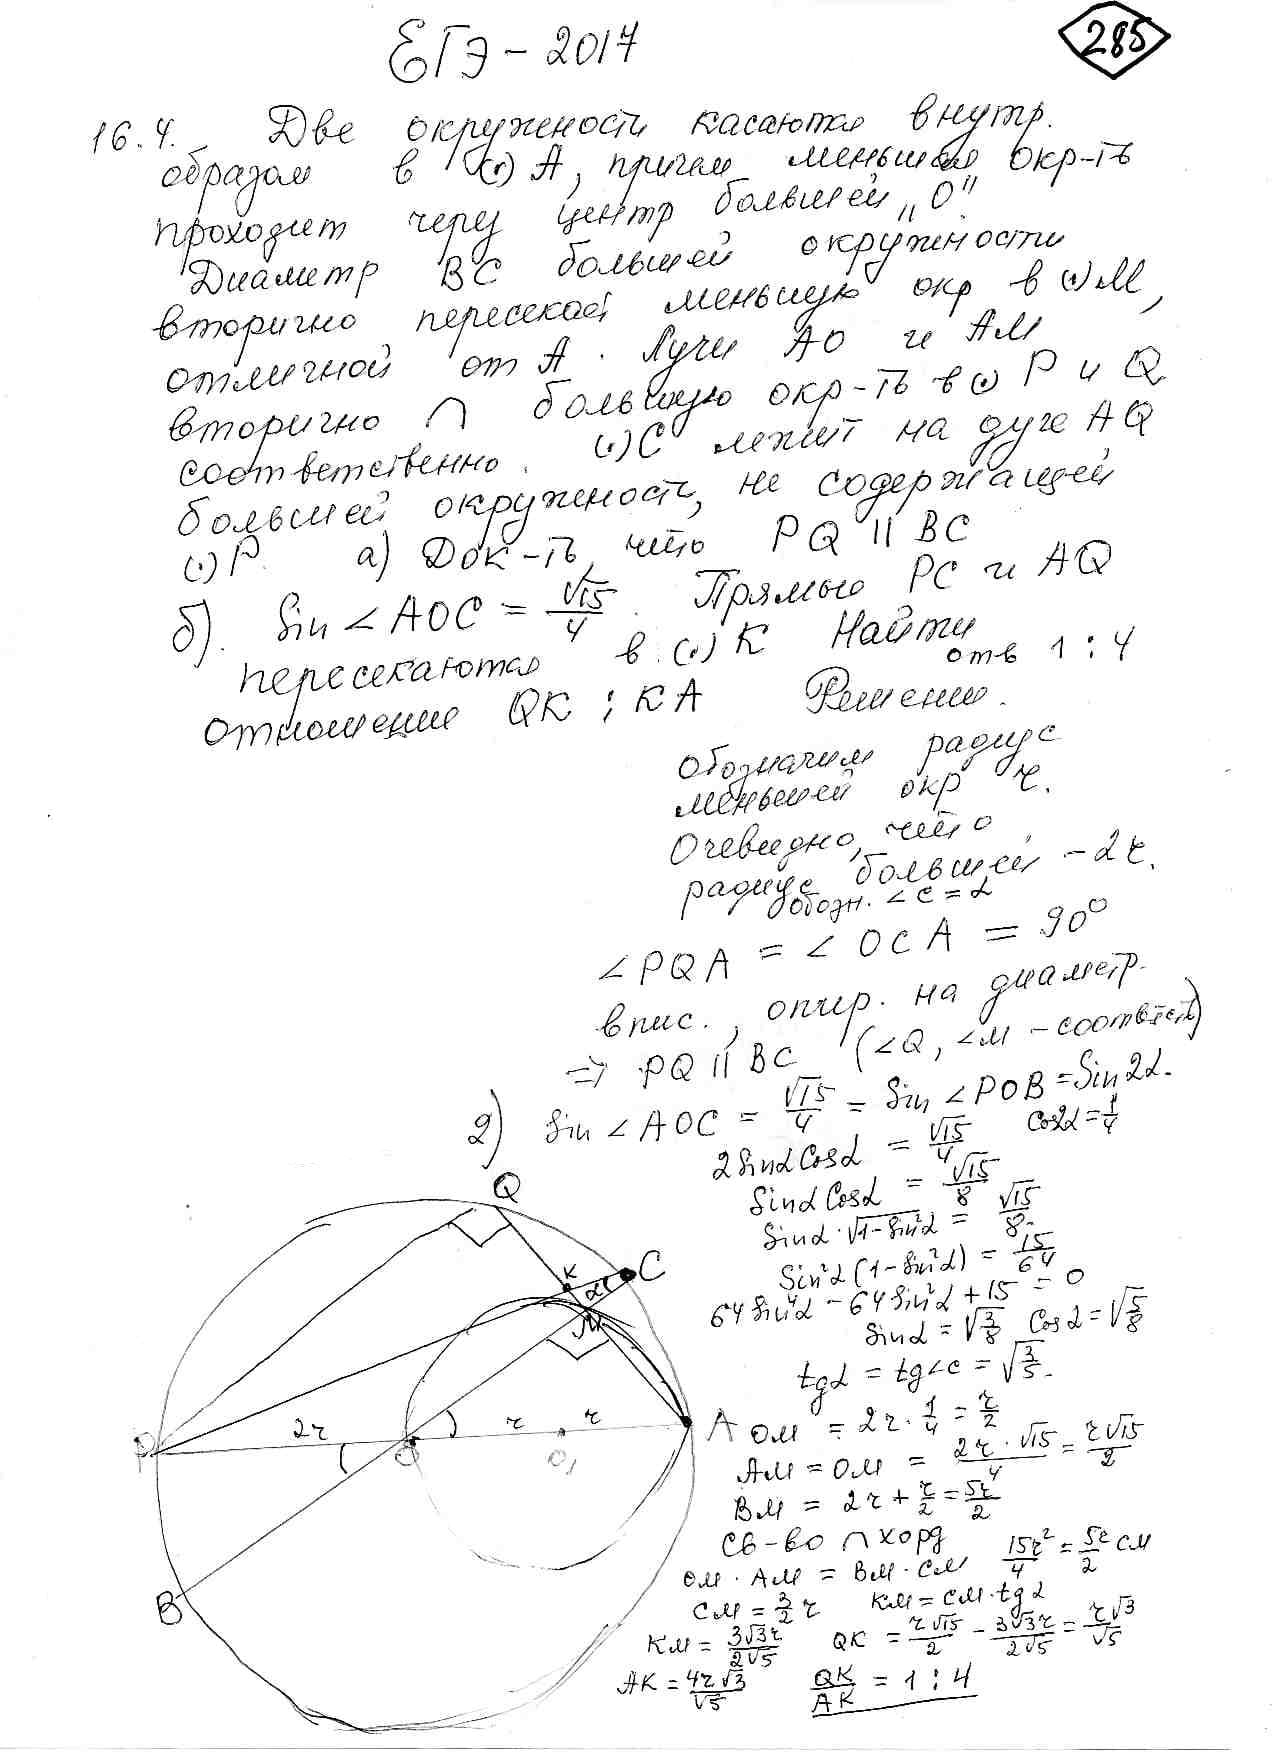 ЕГЭ – 2017
285
16.4. Две окружности касаются внутр.
образом в (·) А, причем меньшая окр-ть
проходит через центр большей „О"
Диаметр ВС большей окружности
вторично пересекает меньшую окр в (·) М,
отличной от А. Лучи АО и АМ
вторично ∩ большую окр-ть в (·) Р и Q
соответственно. (·) С лежит на дуге AQ
большей окружность, не содержащей
(·) Р. а) Док-ть, что PQ || ВС
б). Sin ∠ AOC = √15/4. Прямые РС и AQ
пересекаются в (·) К Найти
отношение QK : KA отв 1 : 4
Решение.
Обозначим радиус
меньшей окр r.
Очевидно, что
радиус большей – 2r.
обозн. ∠ C = α
∠ PQA = ∠ OCA = 90°
впис., опир. на диаметр.
=> PQ || BC (∠Q, ∠M – соответст)
2) Sin ∠ AOC = √15/4 = Sin ∠ POB = Sin 2α.
2 Sinα Cosα = √15/4 Cos2α = 1/4
Sinα Cosα = √15/8
Sinα · √1-Sin²α = √15/8.
Sin²α (1-Sin²α) = 15/64
64 Sin⁴α - 64 Sin²α + 15 = 0
Sinα = √3/8 Cosα = √5/8
tgα = tg∠c = √3/5.
OM = 2r · 1/4 = r/2
AM = QM = 2r · √15/4 = r√15/2
BM = 2r + r/2 = 5r/2
Св-во ∩ хорд 15r²/4 = 5r/2 CM
QM · AM = BM · CM
CM = 3/2 r KM = CM · tgα
KM = 3√3r/2√5 QK = r√15/2 - 3√3r/2√5 = r√3/√5
AK = 4r√3/√5 QK/AK = 1 : 4
Q
K
C
α
M
P
2r
r
r
A
O
O₁
B